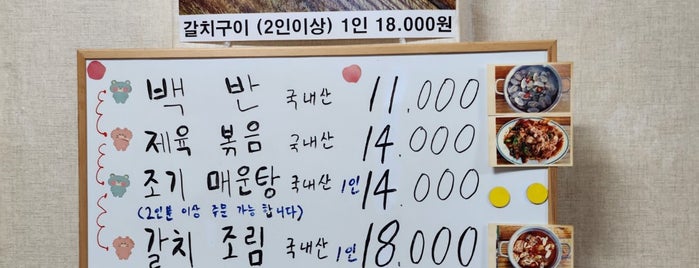 갈치구이 (2인이상) 1인 18.000원
백 반 국내산 11.000
제육 볶음 국내산 14.000
조기 매운탕 국내산 1인 14.000
(2인분 이상 주문 가능 합니다)
갈치 조림 국내산 1인 18.000